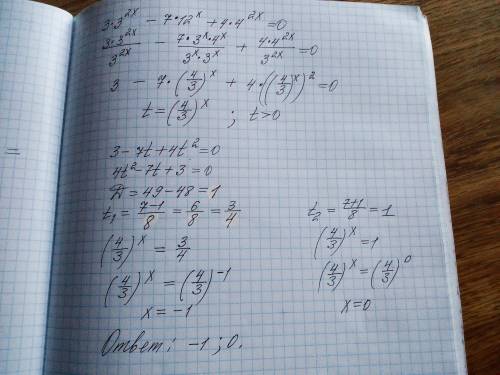 3·3^{2x} − 7·12^x + 4·4^{2x} = 0
\frac{3·3^{2x}}{3^{2x}} − \frac{7·3^x·4^x}{3^x·3^x} + \frac{4·4^{2x}}{3^{2x}} = 0
3 − 7·(\frac{4}{3})^x + 4·((\frac{4}{3})^x)^2 = 0
t = (\frac{4}{3})^x ; t>0
=
3 − 7t + 4t^2 = 0
4t^2 − 7t + 3 = 0
D = 49 − 48 = 1
t_1 = \frac{7−1}{8} = \frac{6}{8} = \frac{3}{4}
(\frac{4}{3})^x = \frac{3}{4}
(\frac{4}{3})^x = (\frac{4}{3})^{−1}
x = −1
t_2 = \frac{7+1}{8} = 1
(\frac{4}{3})^x = 1
(\frac{4}{3})^x = (\frac{4}{3})^0
x = 0
Ответ: −1 ; 0.